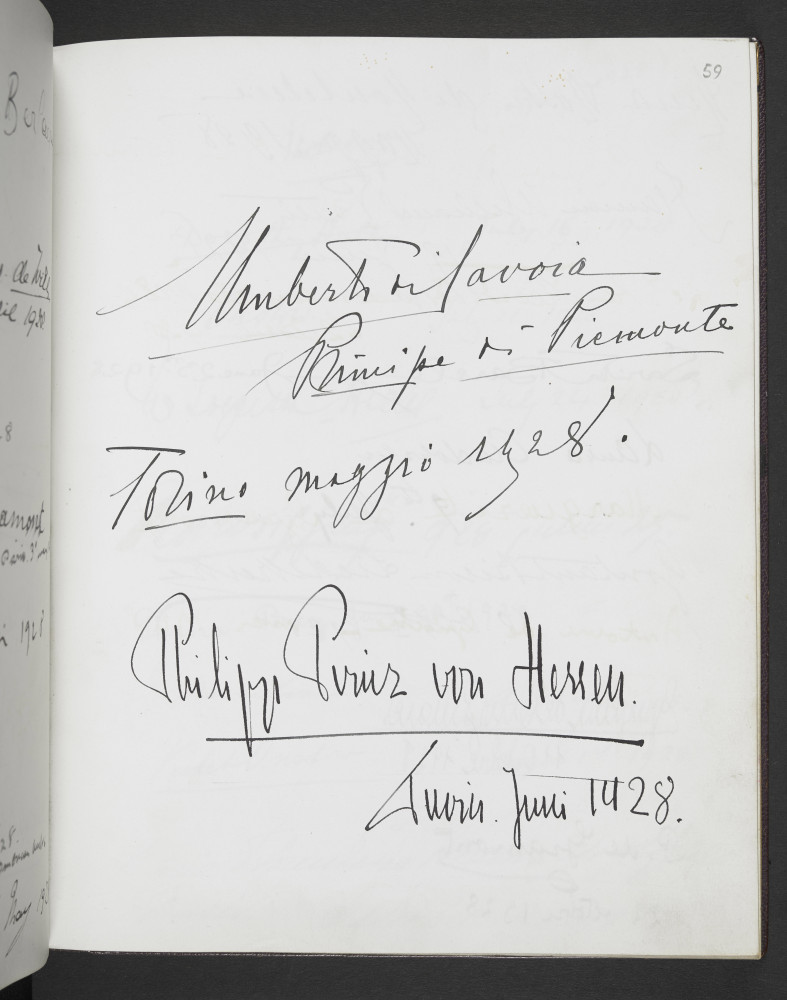 59
Umberto di Savoia
Principe di Piemonte
Torino maggio 1928.
Philipp Prinz von Hessen.
Turin. Juni 1928.